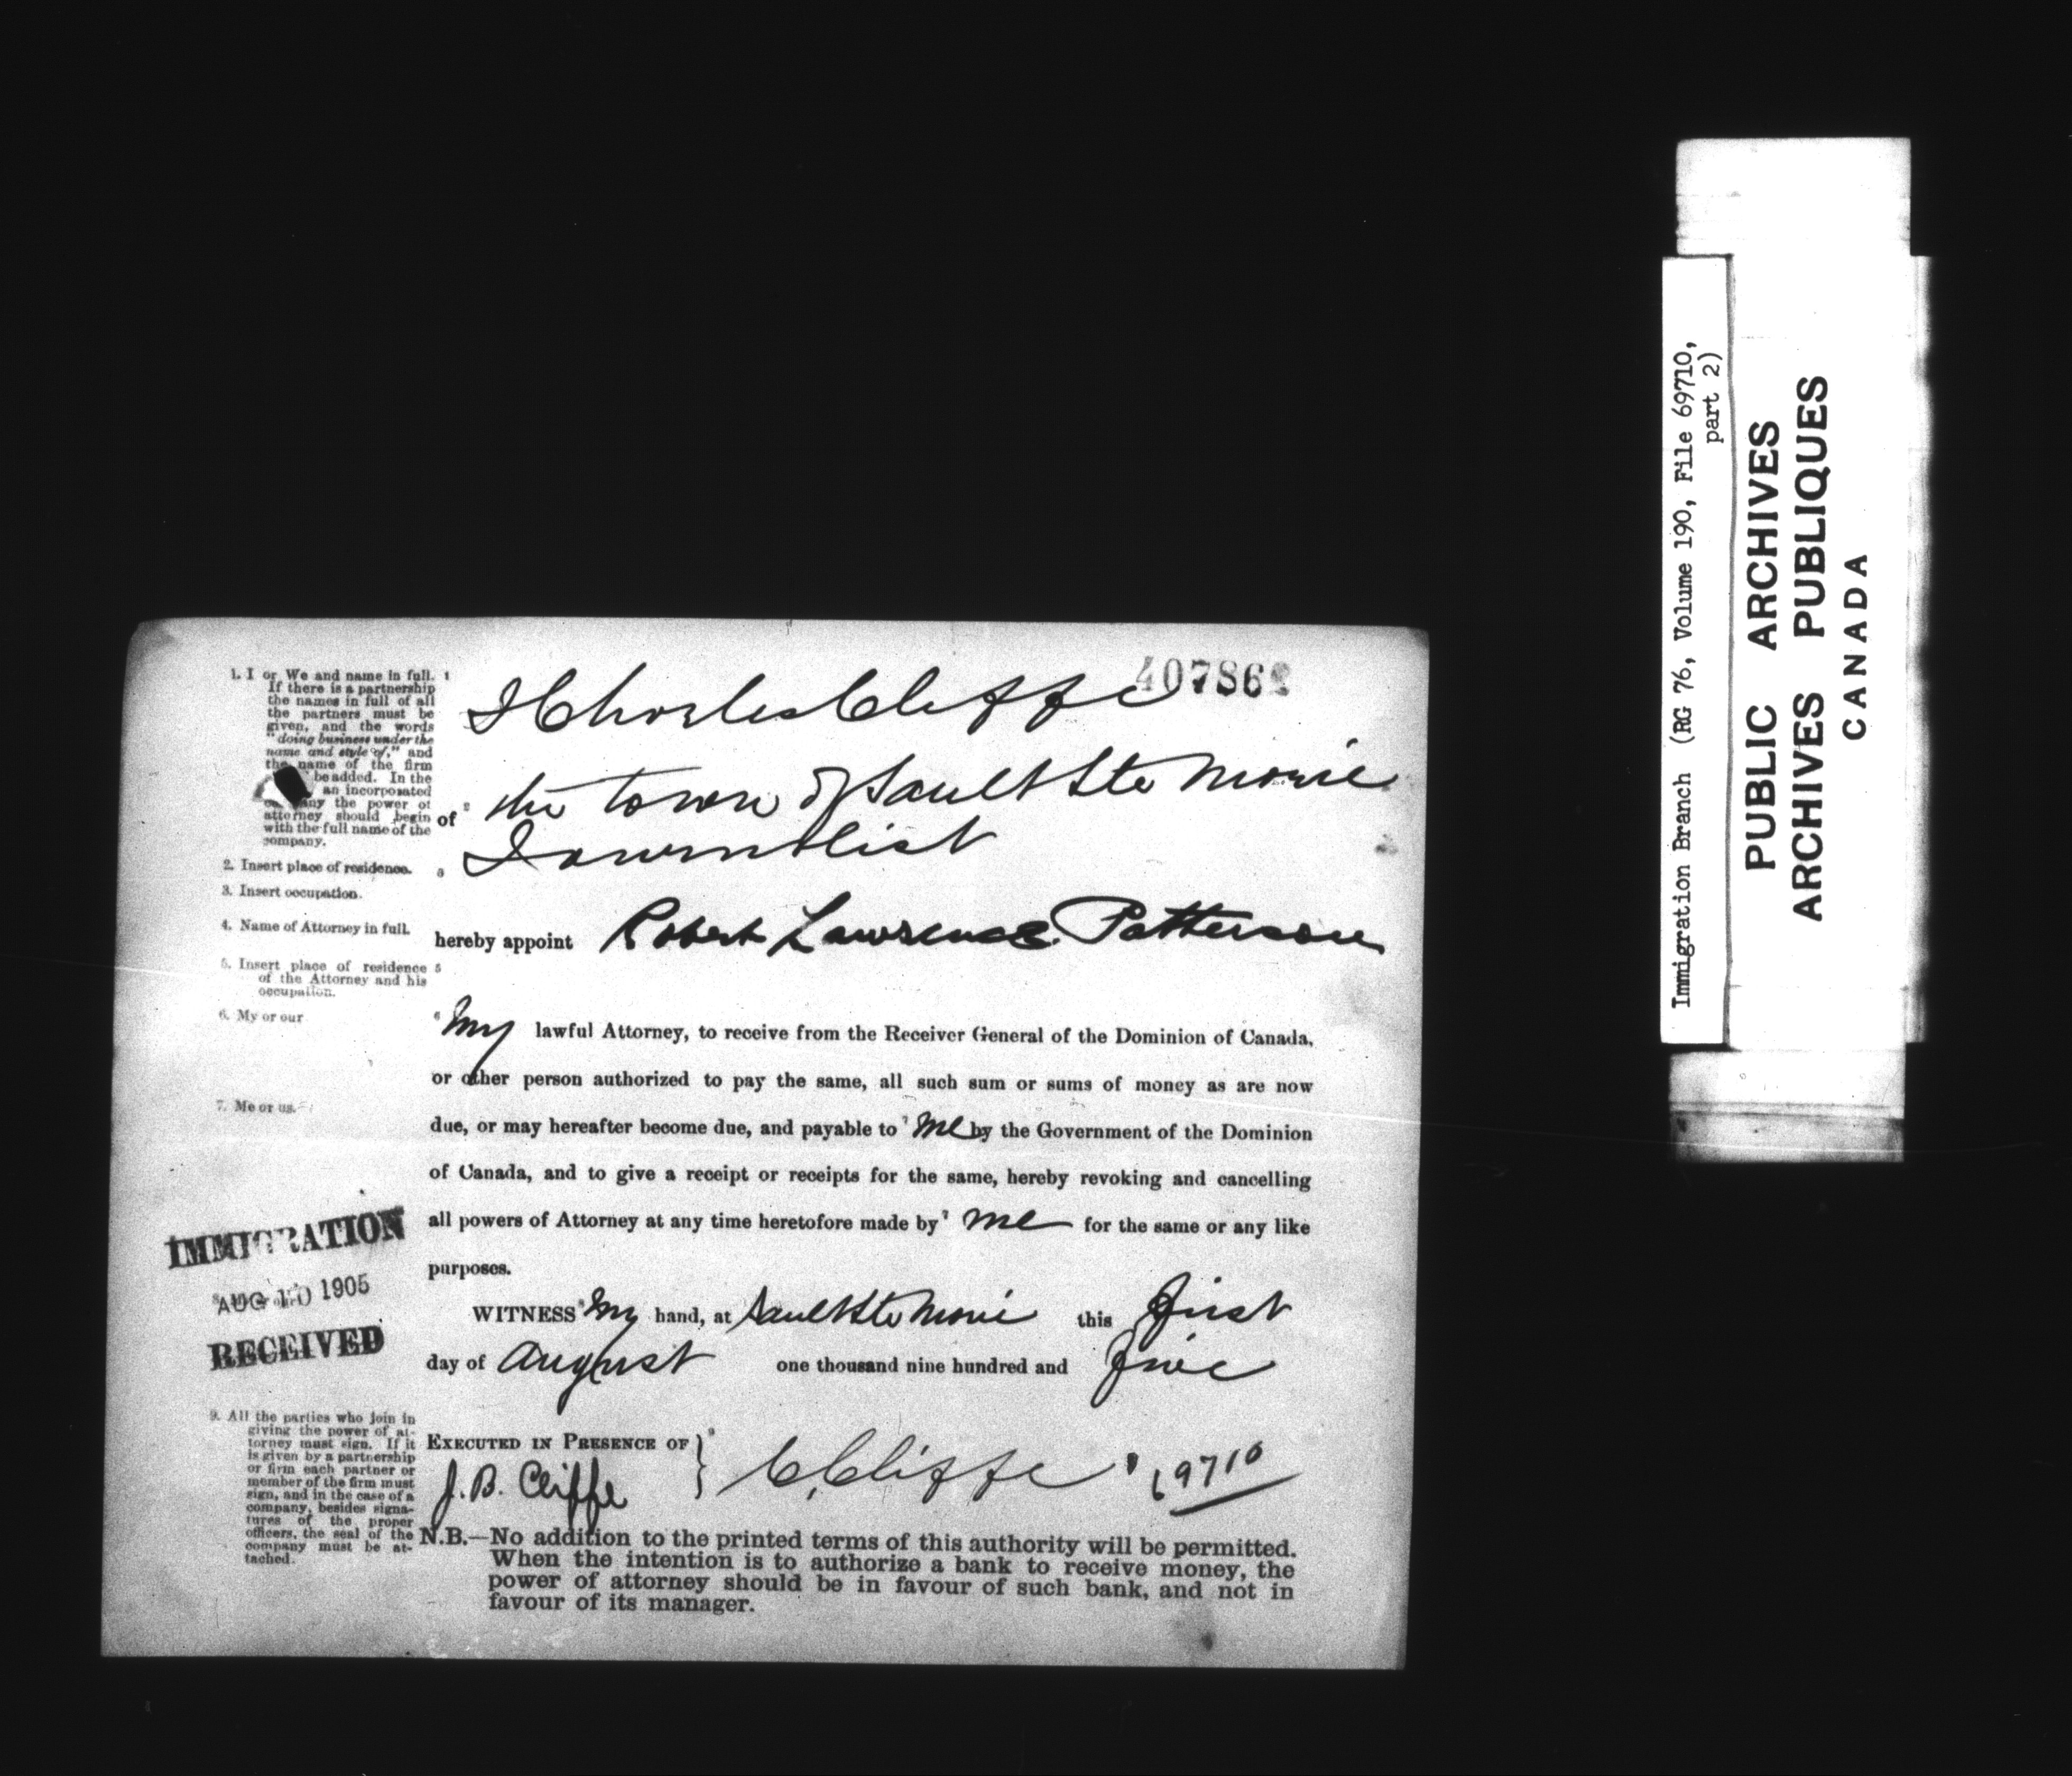 407862
1. I or We and name in full.
If there is a partnership
the names in full of all
the partners must be
given, and the words
"doing business under the
name and style of," and
the name of the firm
be added. In the
an incorporated
the power of
attorney should begin
with the full name of the
company.
2. Insert place of residence.
3. Insert occupation.
4. Name of Attorney in full.
5. Insert place of residence
of the Attorney and his
occupation.
6. My or our
7. Me or us.
IMMIGRATION
AUG 10 1905
RECEIVED
9. All the parties who join in
giving the power of at-
torney must sign. If it
is given by a partnership
or firm each partner or
member of the firm must
sign, and in the case of a
company, besides signa-
tures of the proper
officers, the seal of the
company must be at-
tached.
1 I Charles Cliffe
of 2 the town of Sault Ste Marie
3 Journalist
hereby appoint Robert Lawrence Patterson
5
6 My lawful Attorney, to receive from the Receiver General of the Dominion of Canada,
or other person authorized to pay the same, all such sum or sums of money as are now
due, or may hereafter become due, and payable to 7 me by the Government of the Dominion
of Canada, and to give a receipt or receipts for the same, hereby revoking and cancelling
all powers of Attorney at any time heretofore made by 7 me for the same or any like
purposes.
WITNESS 8 my hand, at Sault Ste Marie this first
day of August one thousand nine hundred and five
EXECUTED IN PRESENCE OF } 9 C. Cliffe 69710
J. B. Cliffe
N.B.—No addition to the printed terms of this authority will be permitted.
When the intention is to authorize a bank to receive money, the
power of attorney should be in favour of such bank, and not in
favour of its manager.
Immigration Branch (RG 76, Volume 190, File 69710,
part 2)
PUBLIC ARCHIVES
ARCHIVES PUBLIQUES
CANADA